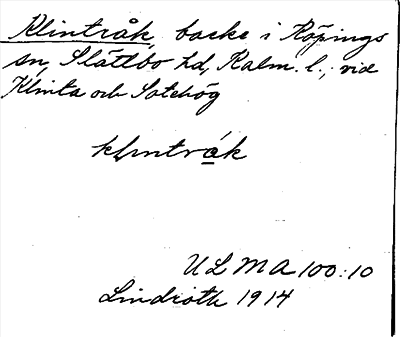 Klintråk, backe i Köpings
sn, Slättbo hd, Kalm. l., vid
Klinta och Satehög
klintråk
ULMA 100:10
Lindroth 1914